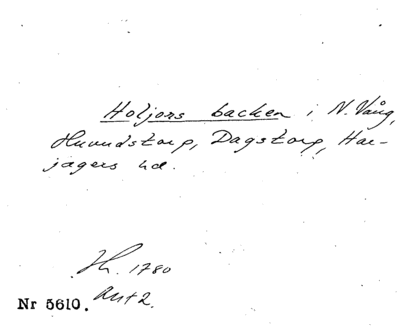 Holjers backen i N. Vång,
Huvudstorp, Dagstorp, Har-
jagers hd.
Th. 1780
Akt 2.
Nr 5610.